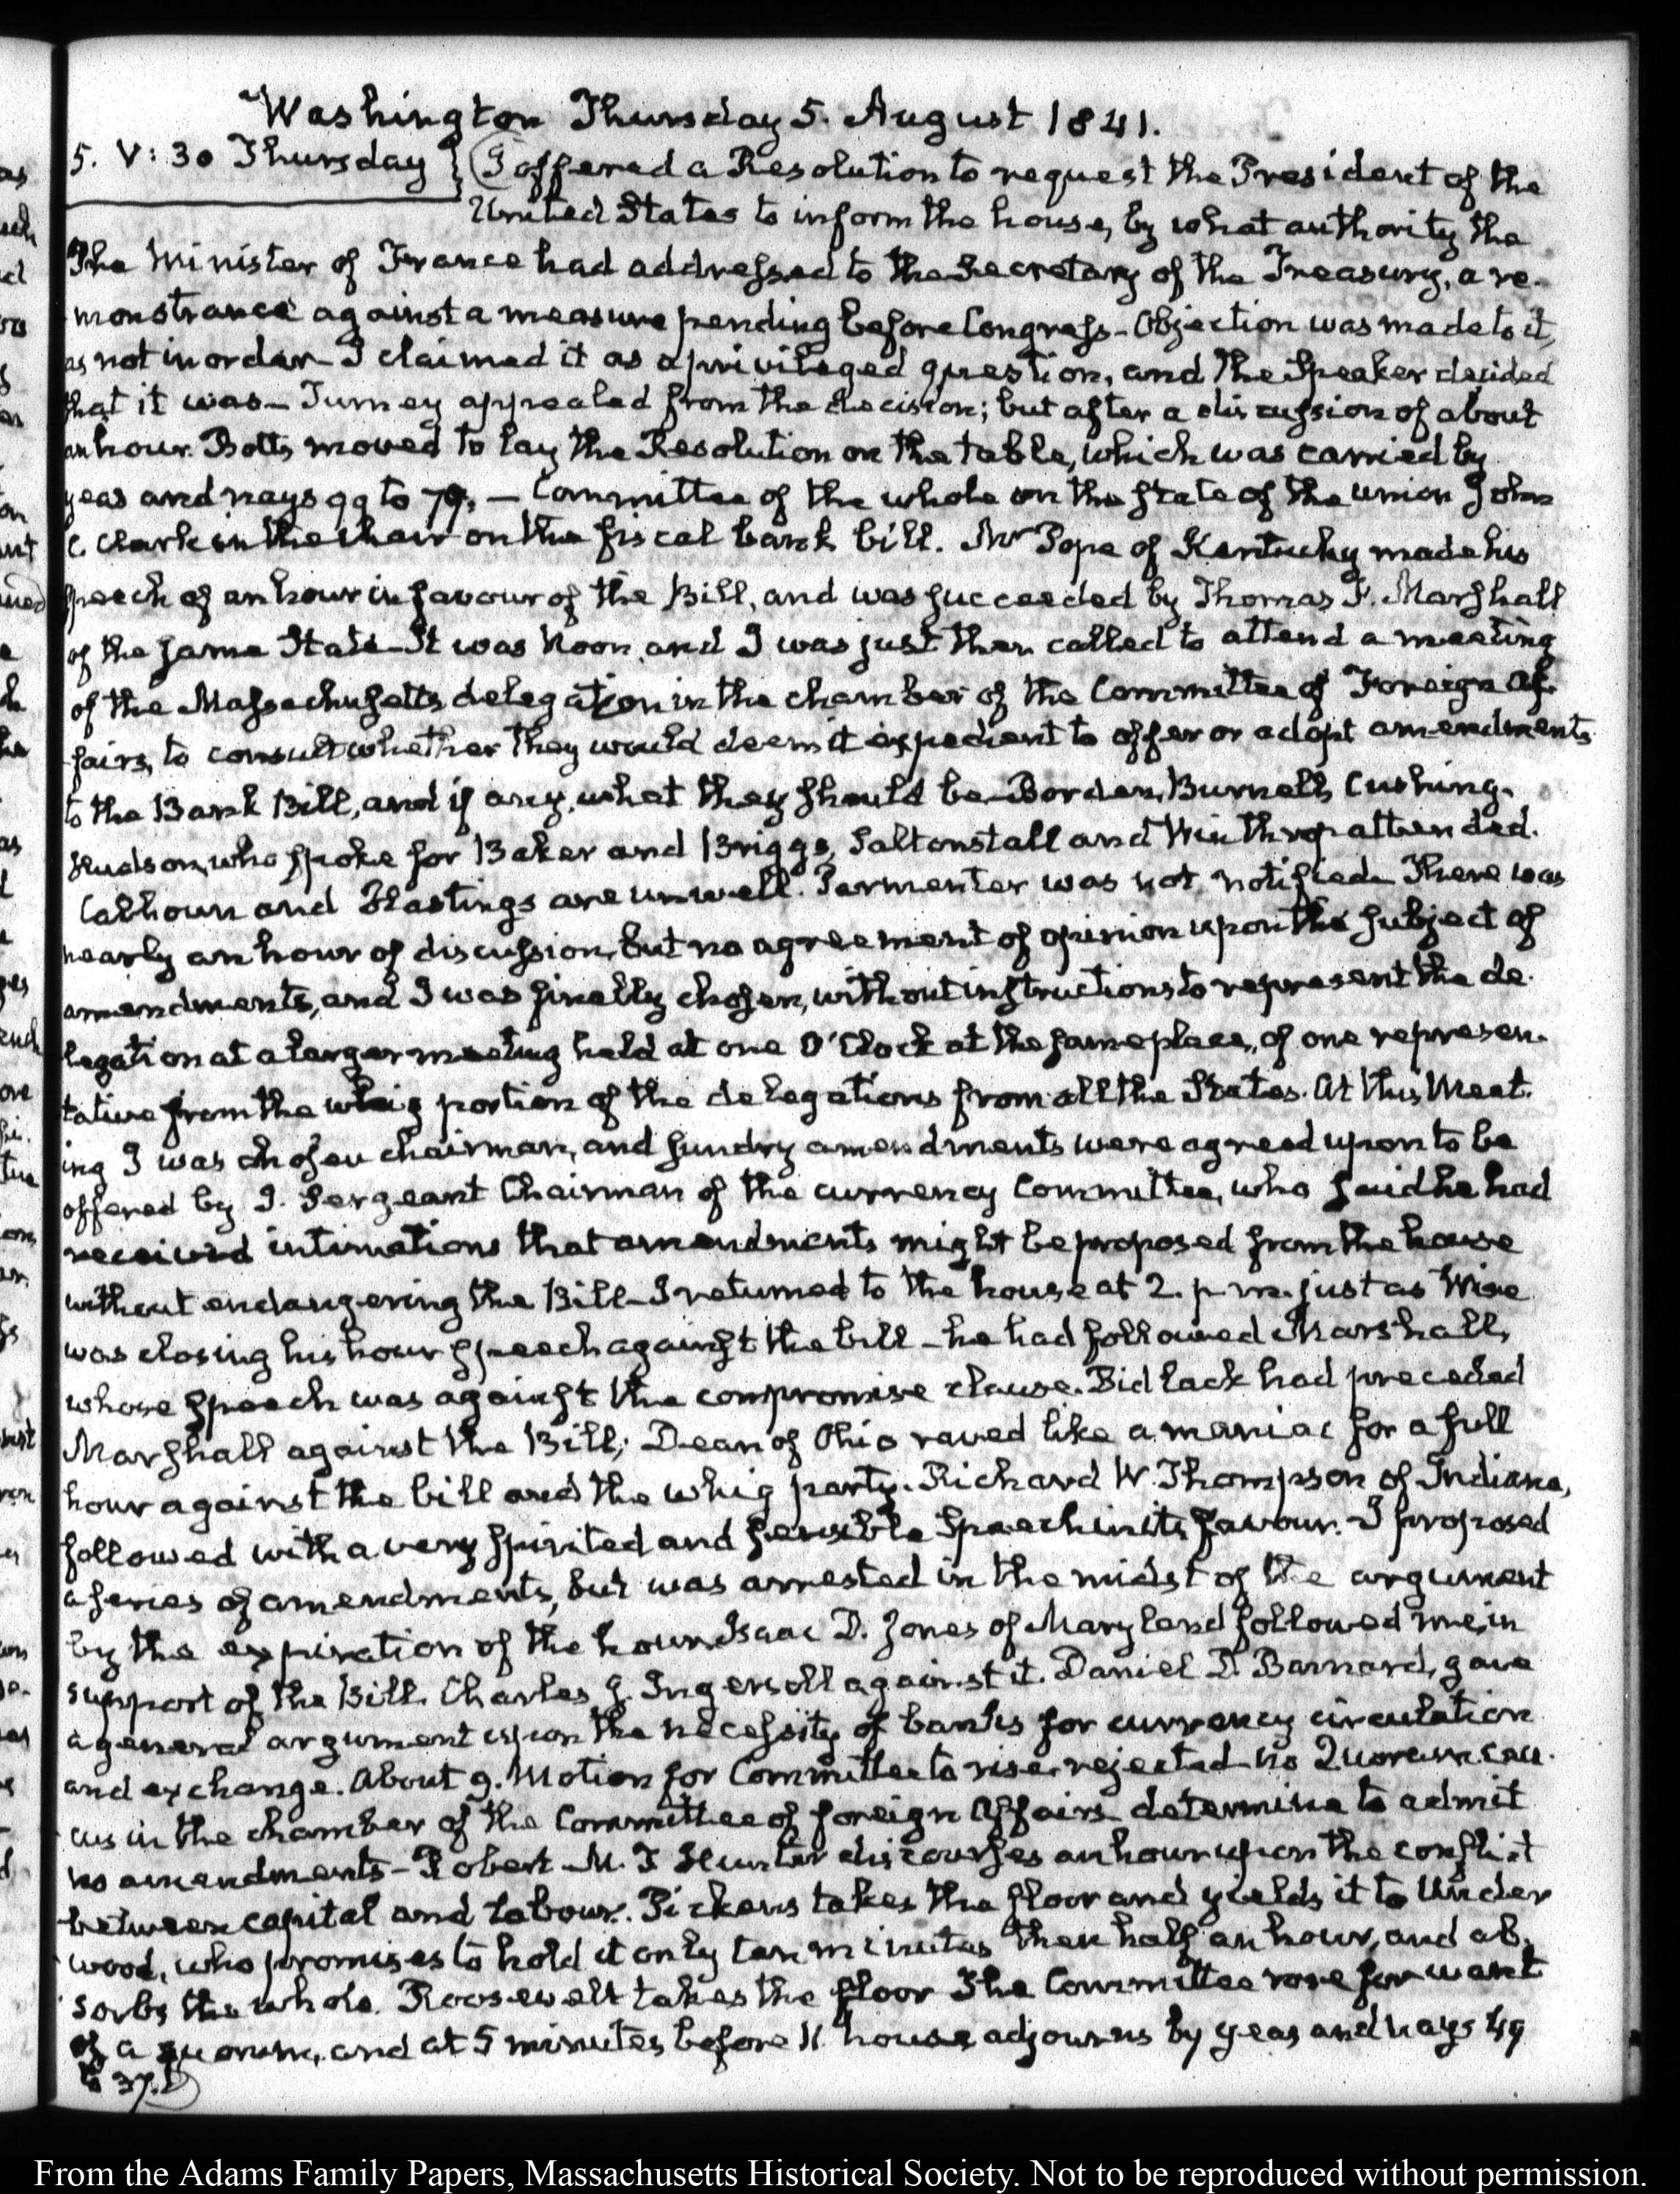 Washington Thursday 5. August 1841.
5. V: 30 Thursday } (I offered a Resolution to request the President of the
United States to inform the house, by what authority the
The Minister of France had addressed to the Secretary of the Treasury, a re-
monstrance against a measure pending before Congress- Objection was made to it,
as not in order- I claimed it as a privileged question, and the Speaker decided
that it was- Turney appealed from the decision; but after a discussion of about
an hour Botts moved to lay the Resolution on the table, which was carried by
yeas and nays 99 to 79,- Committee of the whole on the State of the union John
C. Clark in the chair on the fiscal bank bill. Mr Pope of Kentucky made his
speech of an hour in favour of the Bill, and was succeeded by Thomas F. Marshall
of the same State- It was Noon, and I was just then called to attend a meeting
of the Massachusetts delegation in the chamber of the Committee of Foreign Af-
fairs, to consult whether they would deem it expedient to offer or adopt amendments
to the Bank Bill, and if any, what they should be- Borden, Burnell, Cushing,
Hudson, who spoke for Baker and Briggs, Saltonstall and Winthrop attended.
Calhoun and Hastings are unwell. Parmenter was not notified- There was
nearly an hour of discussion, but no agreement of opinion upon the subject of
amendments, and I was finally chosen, without instructions to represent the de-
legation at a larger meeting held at one O'Clock at the same place, of one represen-
tative from the whig portion of the delegations from all the States. At this Meet-
ing I was chosen chairman, and sundry amendments were agreed upon to be
offered by J. Sergeant Chairman of the currency Committee, who said he had
received intimations that amendments might be proposed from the house
without endangering the Bill- I returned to the house at 2. p.m. just as Wise
was closing his hour speech against the bill- he had followed Marshall,
whose speech was against the compromise clause. Bidlack had preceded
Marshall against the Bill; Dean of Ohio raved like a maniac for a full
hour against the bill and the whig party. Richard W. Thompson of Indiana,
followed with a very spirited and sensible Speech in its favour. I proposed
a series of amendments, but was arrested in the midst of the argument
by the expiration of the hour. Isaac D. Jones of Maryland followed me, in
support of the Bill. Charles J. Ingersoll against it. Daniel D. Barnard, gave
a general argument upon the necessity of banks for currency circulation
and exchange. About 9. Motion for Committee to rise, rejected- No Quorum. cau-
cus in the chamber of the Committee of foreign Affairs- determine to admit
no amendments- Robert M. T Hunter discourses an hour upon the conflict
between capital and labour. Pickens takes the floor and yields it to Under
wood, who promises to hold it only ten minutes then half an hour, and ab-
sorbs the whole. Roosevelt takes the floor The Committee rose for want
of a quorum, and at 5 minutes before 11. house adjourns by yeas and nays 49
to 37.)
From the Adams Family Papers, Massachusetts Historical Society. Not to be reproduced without permission.